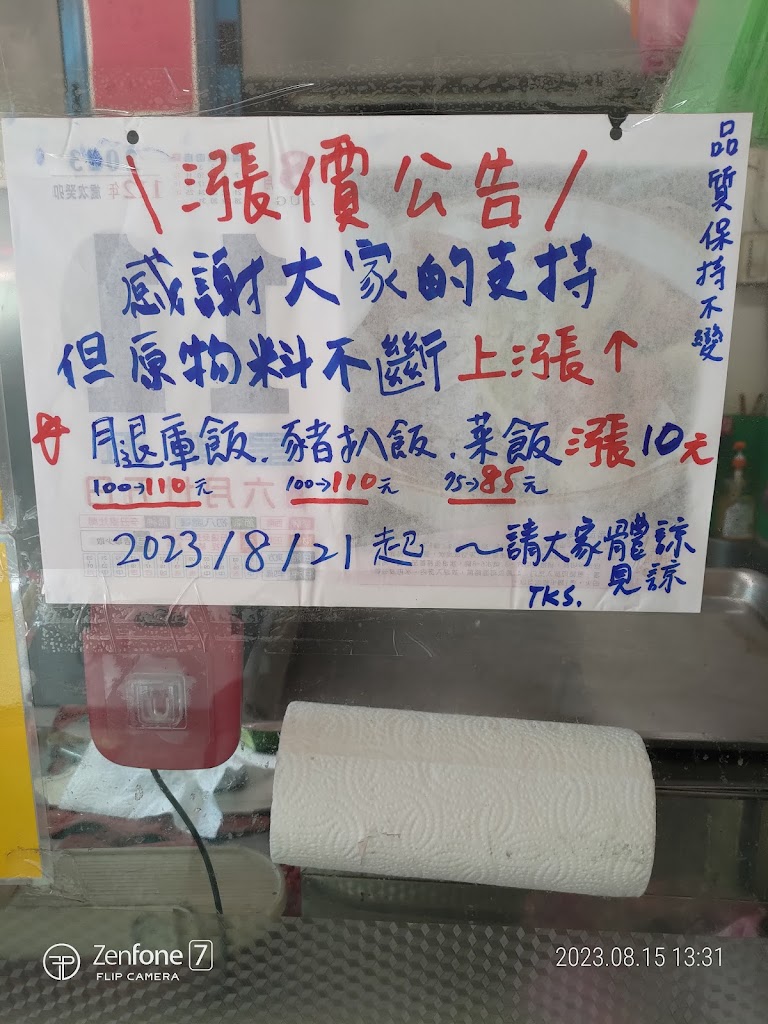 \漲價公告/
感謝大家的支持
但原物料不斷上漲↑
腿庫飯.豬扒飯.菜飯漲10元
100→110元 100→110元 75→85元
2023/8/21起 ~請大家體諒
見諒
TKS.
品質保持不變
Zenfone 7
FLIP CAMERA
2023.08.15 13:31